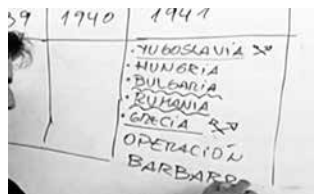 39 1940 1941
· YUGOSLAVIA
· HUNGRIA
· BULGARIA
· RUMANIA
· GRECIA
OPERACIÓN
BARBARR